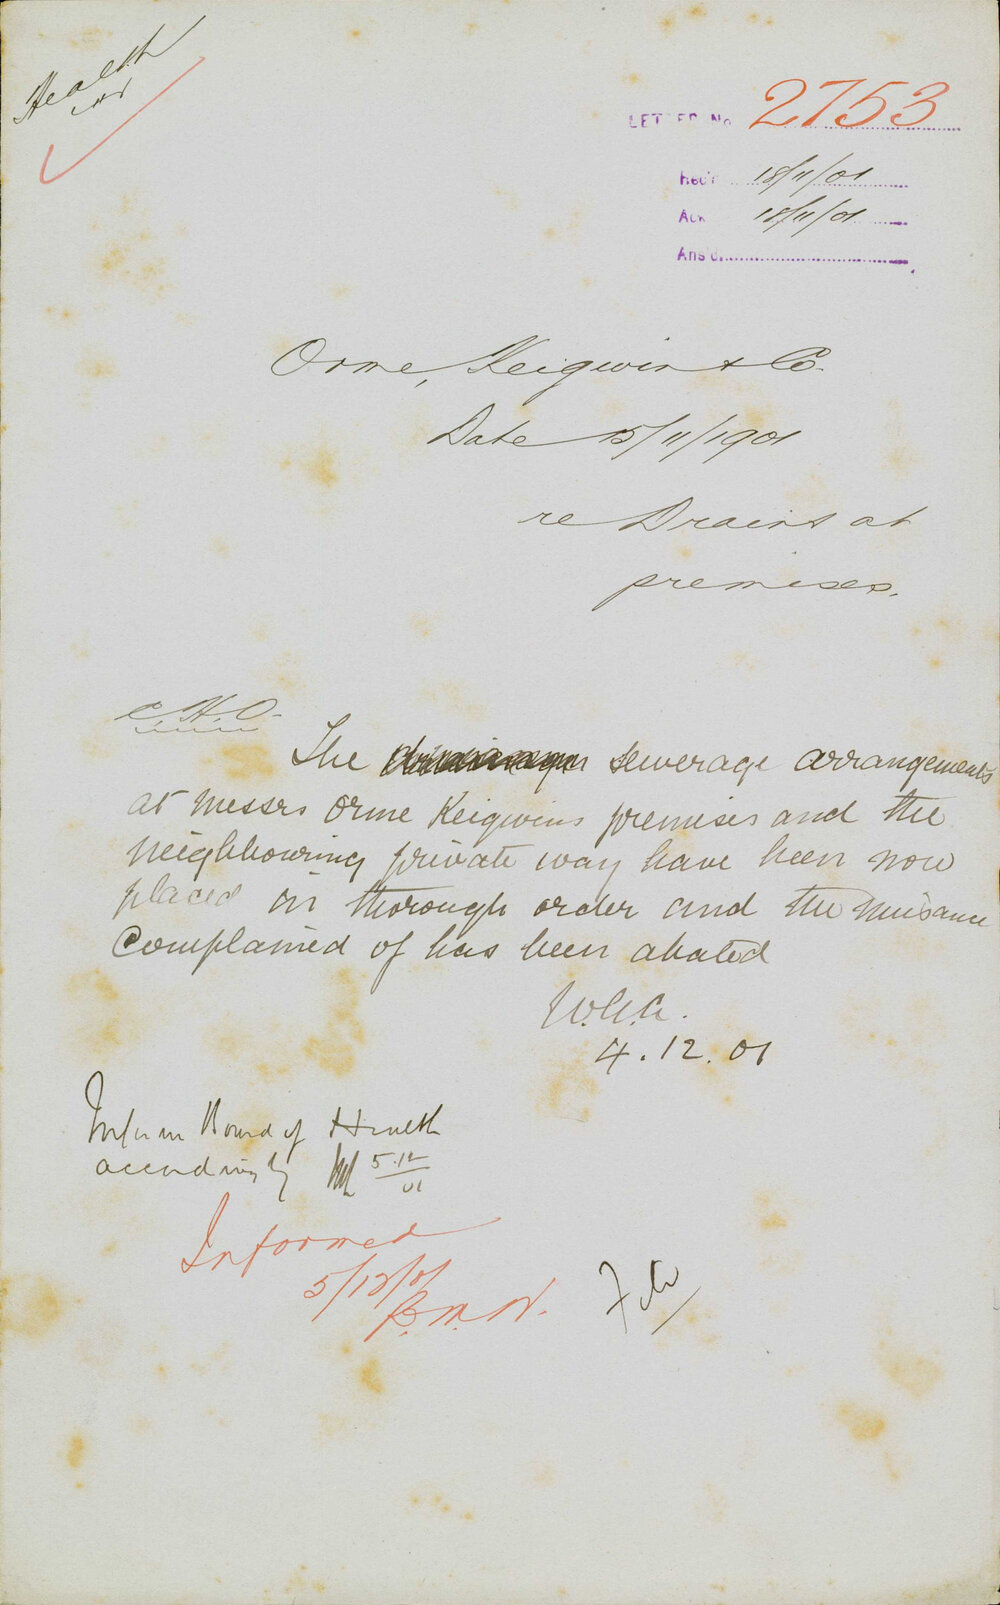 Health
LETTER No 2753
Rec'd 18/11/01
Ack 18/11/01
Ans'd
Orme, Keigwin & Co.
Date 15/11/1901
re Drains at
premises.
C.H.O.
The sewerage arrangements
at Messrs Orme Keigwins premises and the
neighbouring private way have been now
placed in thorough order and the nuisance
Complained of has been abated
4.12.01
Inform Board of Health
accordingly 5.12/01
Informed
5/12/01
File